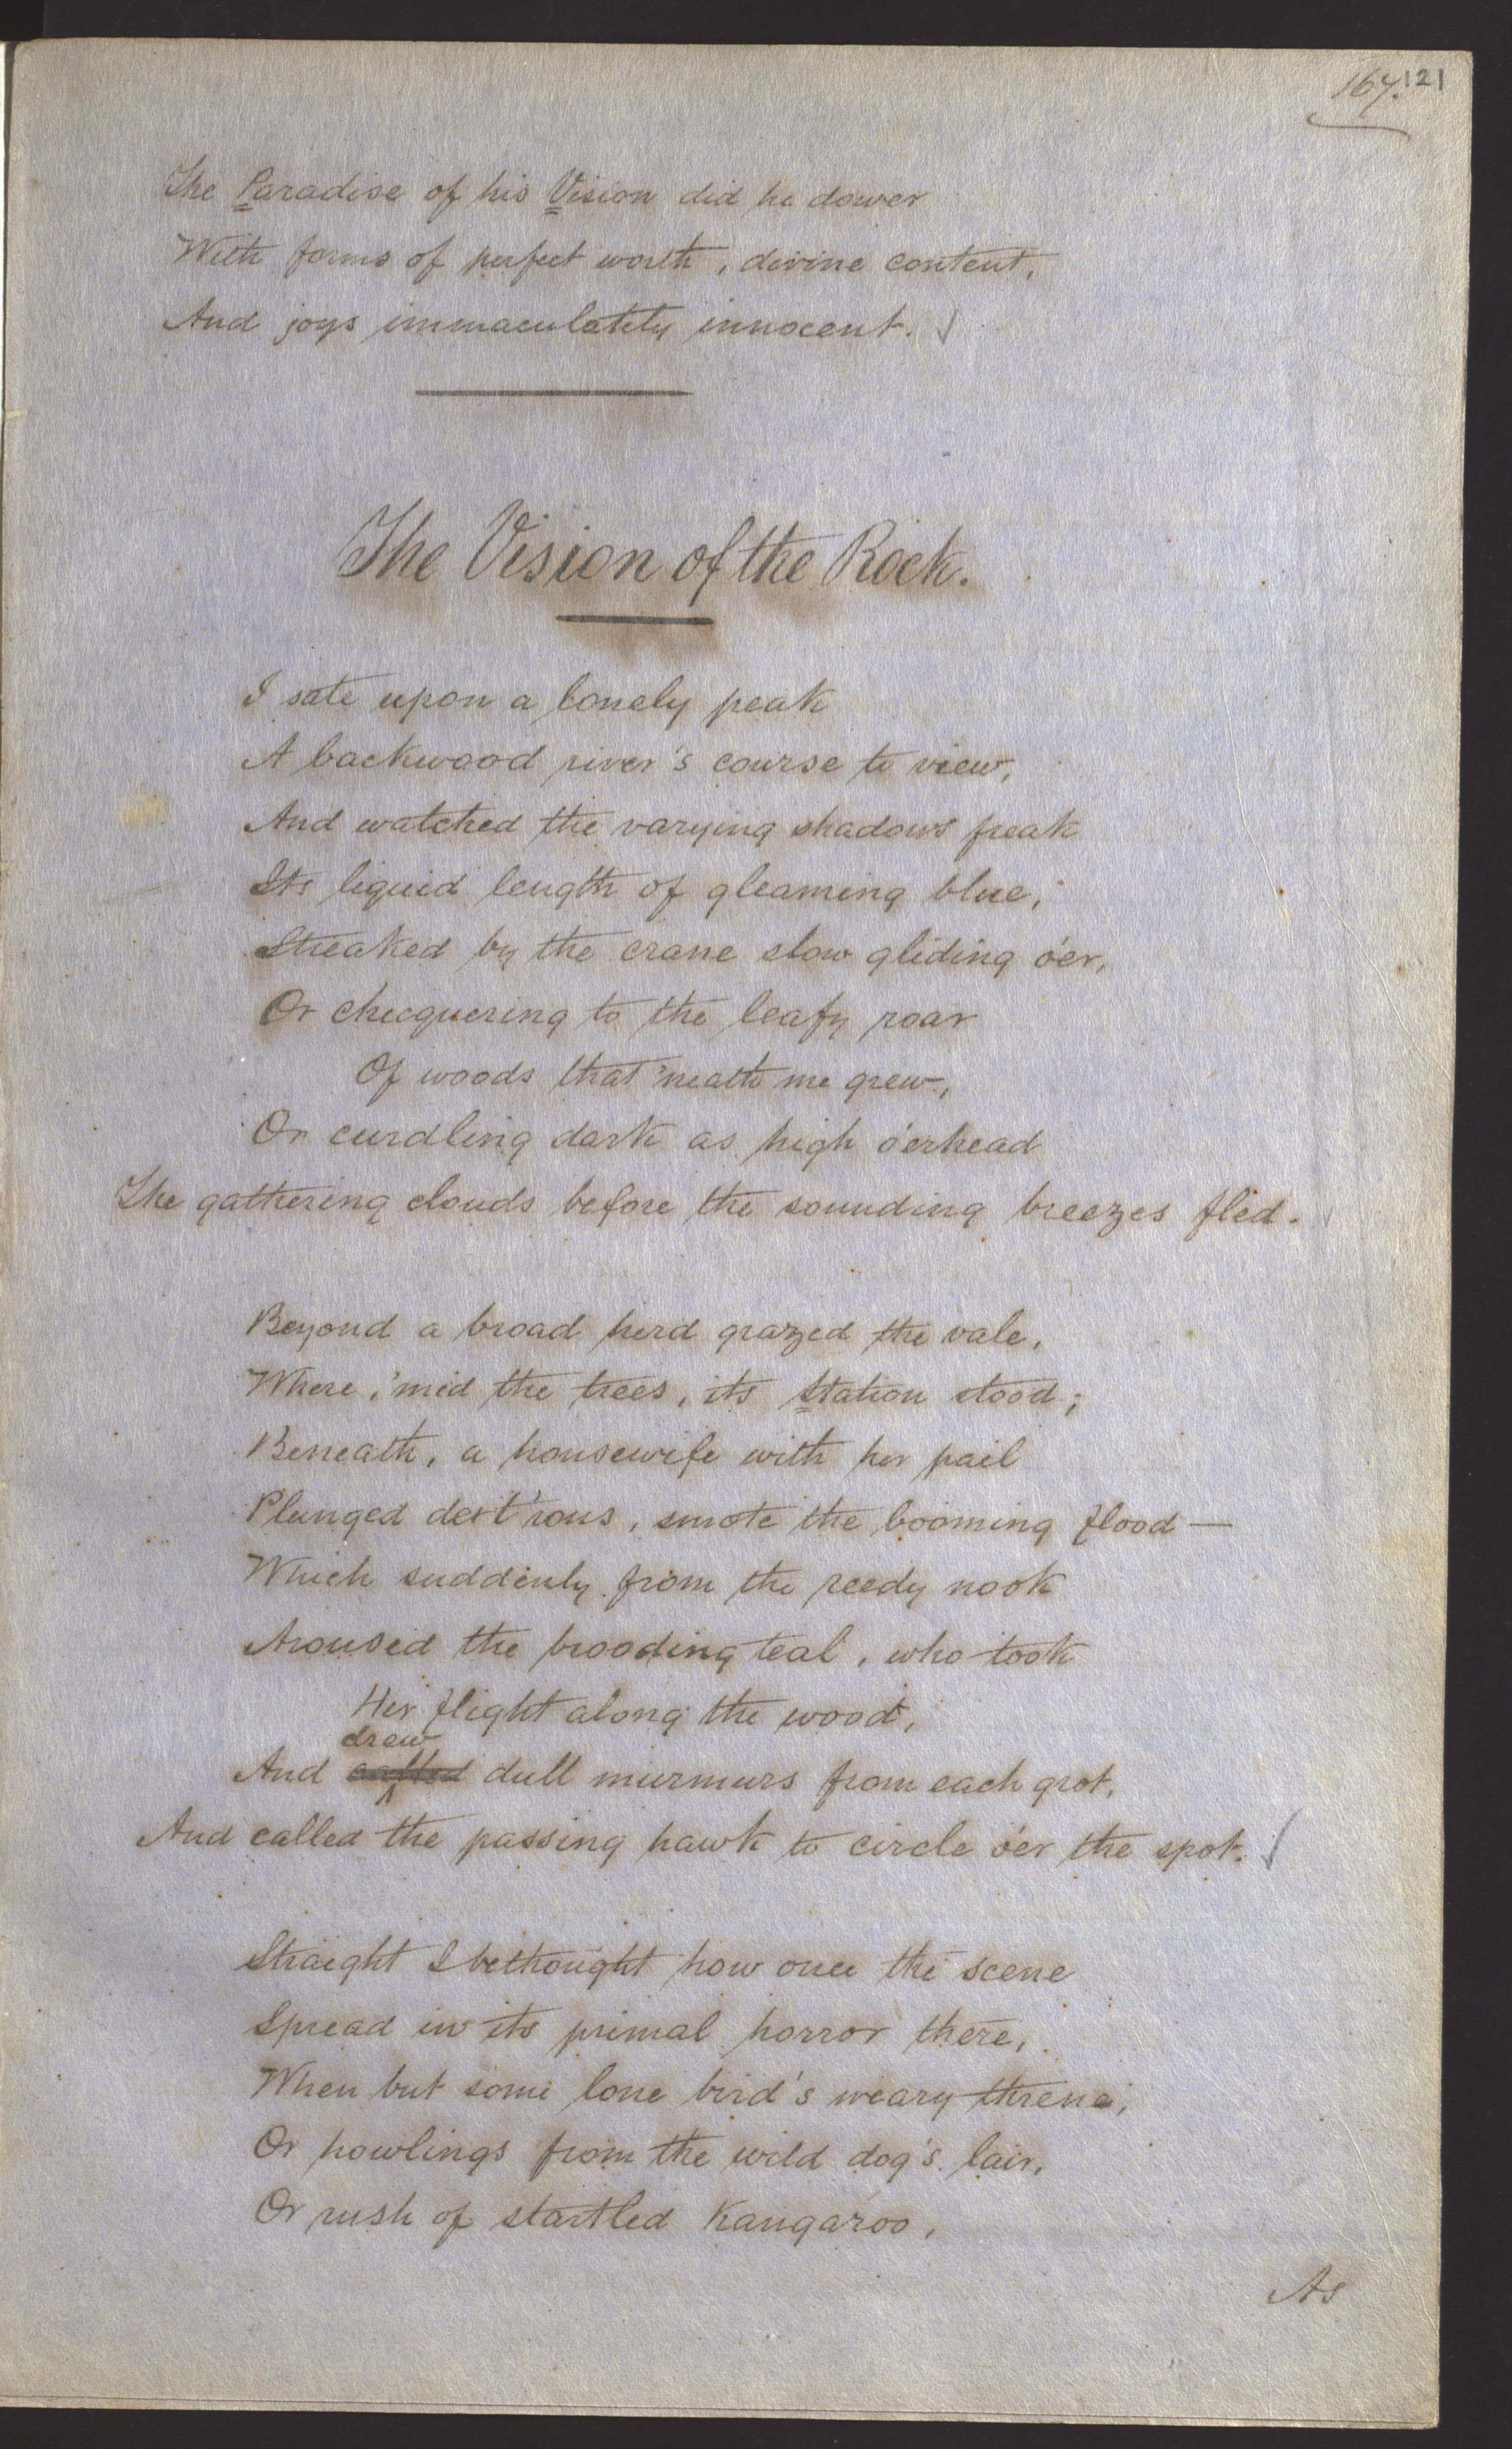 167. 121
The Paradise of his Vision did he dower
With forms of perfect worth, divine content,
And joys immaculately innocent.
The Vision of the Rock.
I sate upon a lonely peak
A backwood river's course to view,
And watched the varying shadows freak
Its liquid length of gleaming blue,
Streaked by the crane slow gliding o'er,
Or checquering to the leafy roar
Of woods that 'neath me grew,
Or curdling dark as high o'erhead
The gathering clouds before the sounding breezes fled.
Beyond a broad herd grazed the vale,
Where, 'mid the trees, its Station stood;
Beneath, a housewife with her pail
Plunged dext'rous, smote the booming flood—
Which suddenly from the reedy nook
Aroused the brooding teal, who took
Her flight along the wood,
drew
And called dull murmurs from each grot,
And called the passing hawk to circle o'er the spot.
Straight I bethought how once the scene
Spread in its primal horror there,
When but some lone bird's weary threne,
Or howlings from the wild dog's lair,
Or rush of startled Kangaroo,
As